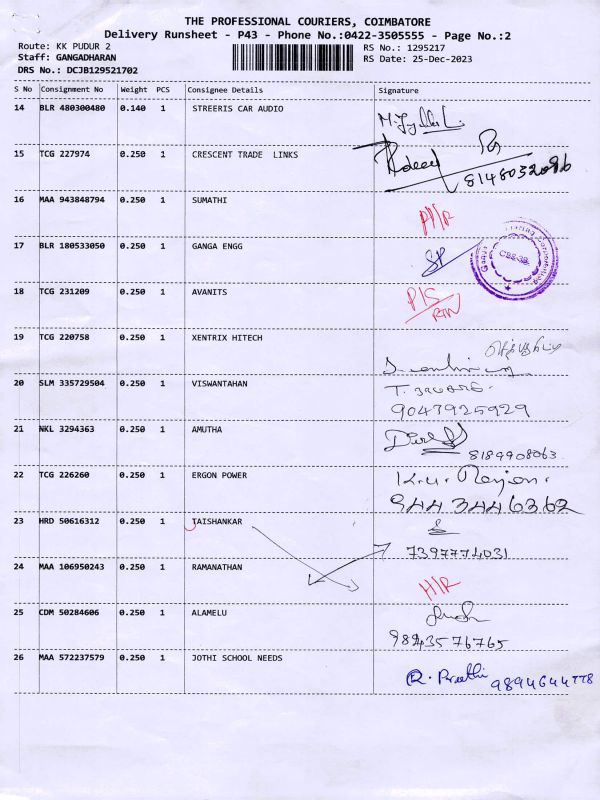 THE PROFESSIONAL COURIERS, COIMBATORE
Delivery Runsheet - P43 - Phone No.:0422-3505555 - Page No.:2
Route: KK PUDUR 2
RS No.: 1295217
Staff: GANGADHARAN
RS Date: 25-Dec-2023
DRS No.: DCJB129521702
S No Consignment No Weight PCS Consignee Details Signature
14 BLR 480300480 0.140 1 STREERIS CAR AUDIO
15 TCG 227974 0.250 1 CRESCENT TRADE LINKS
8148032086
16 MAA 943848794 0.250 1 SUMATHI
17 BLR 180533050 0.250 1 GANGA ENGG
CBE-38.
18 TCG 231209 0.250 1 AVANITS
19 TCG 220758 0.250 1 XENTRIX HITECH
20 SLM 335729504 0.250 1 VISWANTAHAN
9047925929
21 NKL 3294363 0.250 1 AMUTHA
8189908063
22 TCG 226260 0.250 1 ERGON POWER
9443446362
23 HRD 50616312 0.250 1 TAISHANKAR
7397774031
24 MAA 106950243 0.250 1 RAMANATHAN
25 CDM 50284606 0.250 1 ALAMELU
9843576765
26 MAA 572237579 0.250 1 JOTHI SCHOOL NEEDS
R. Preethi 9894644778